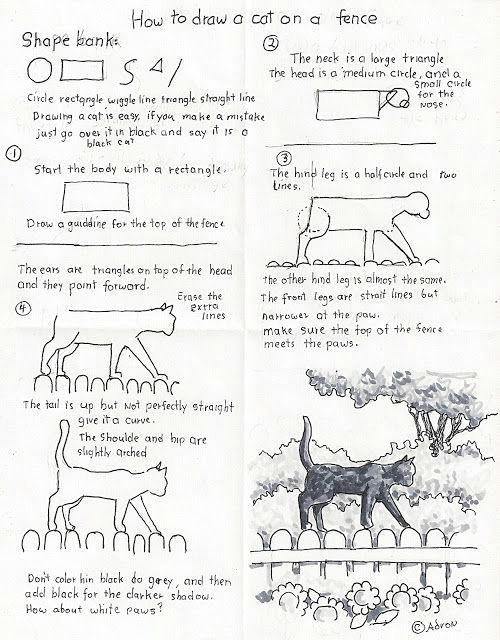 How to draw a cat on a fence
Shape bank:
Circle rectangle wiggle line triangle straight line
Drawing a cat is easy, if you make a mistake
just go over it in black and say it is a
black cat
①
Start the body with a rectangle.
Draw a guidline for the top of the fence
②
The neck is a large triangle
The head is a medium circle, and a
small circle
for the
nose.
③
The hind leg is a half circle and two
lines.
The other hind leg is almost the same.
The front legs are strait lines but
narrower at the paw.
make sure the top of the fence
meets the paws.
The ears are triangles on top of the head
and they point forward.
④
Erase the
extra
lines
The tail is up but not perfectly straight
give it a curve.
The shoulde and hip are
slightly arched
Don't color hin black do grey, and then
add black for the darker shadow.
How about white paws?
© Adron